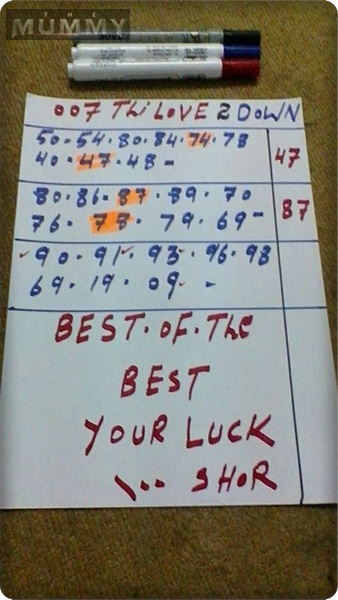 THE
MUMMY
007 Thi LOVE 2 DOWN
50 - 54 . 80 . 84 . 74 . 78
40 . 47 . 48 - 47
80 . 86 . 87 . 89 . 70
76 . 78 . 79 . 69 - 87
90 . 91 . 93 . 96 . 98
69 . 19 . 09 . -
BEST . OF . The
BEST
YOUR LUCK
\.. SHOR